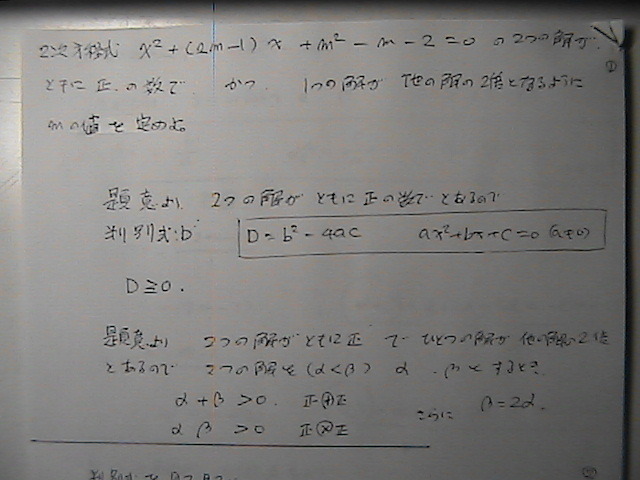 2次方程式 x² + (2m-1) x + m² - m - 2 = 0 の2つの解が
ともに正の数で かつ 1つの解が 他の解の2倍となるように
mの値を定めよ。
①
題意より 2つの解がともに正の数で とあるので
判別式:D D = b² - 4ac ax²+bx+c=0 (a≠0)
D ≧ 0.
題意より 2つの解がともに正 で ひとつの解が他の解の2倍
とあるので 2つの解を (α<β) α . β とするとき
α + β > 0. 正⊕正
さらに β = 2α.
α β > 0 正⊗正